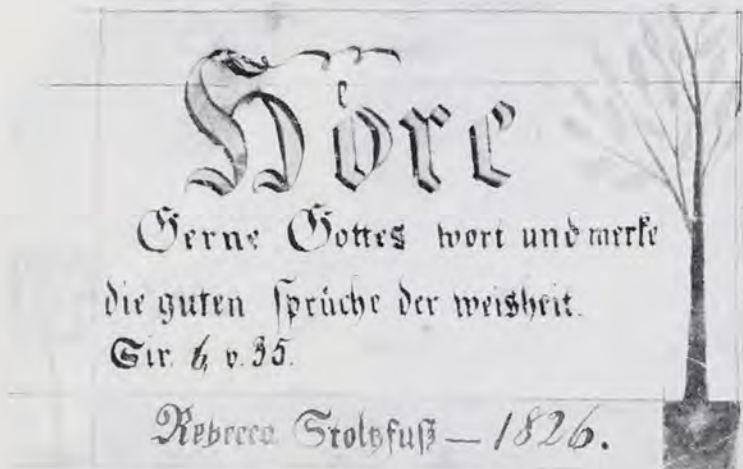 Höre
Gerne Gottes wort und merke
die guten sprüche der weisheit.
Sir. 6, v. 35.
Rebecca Stoltzfuß — 1826.